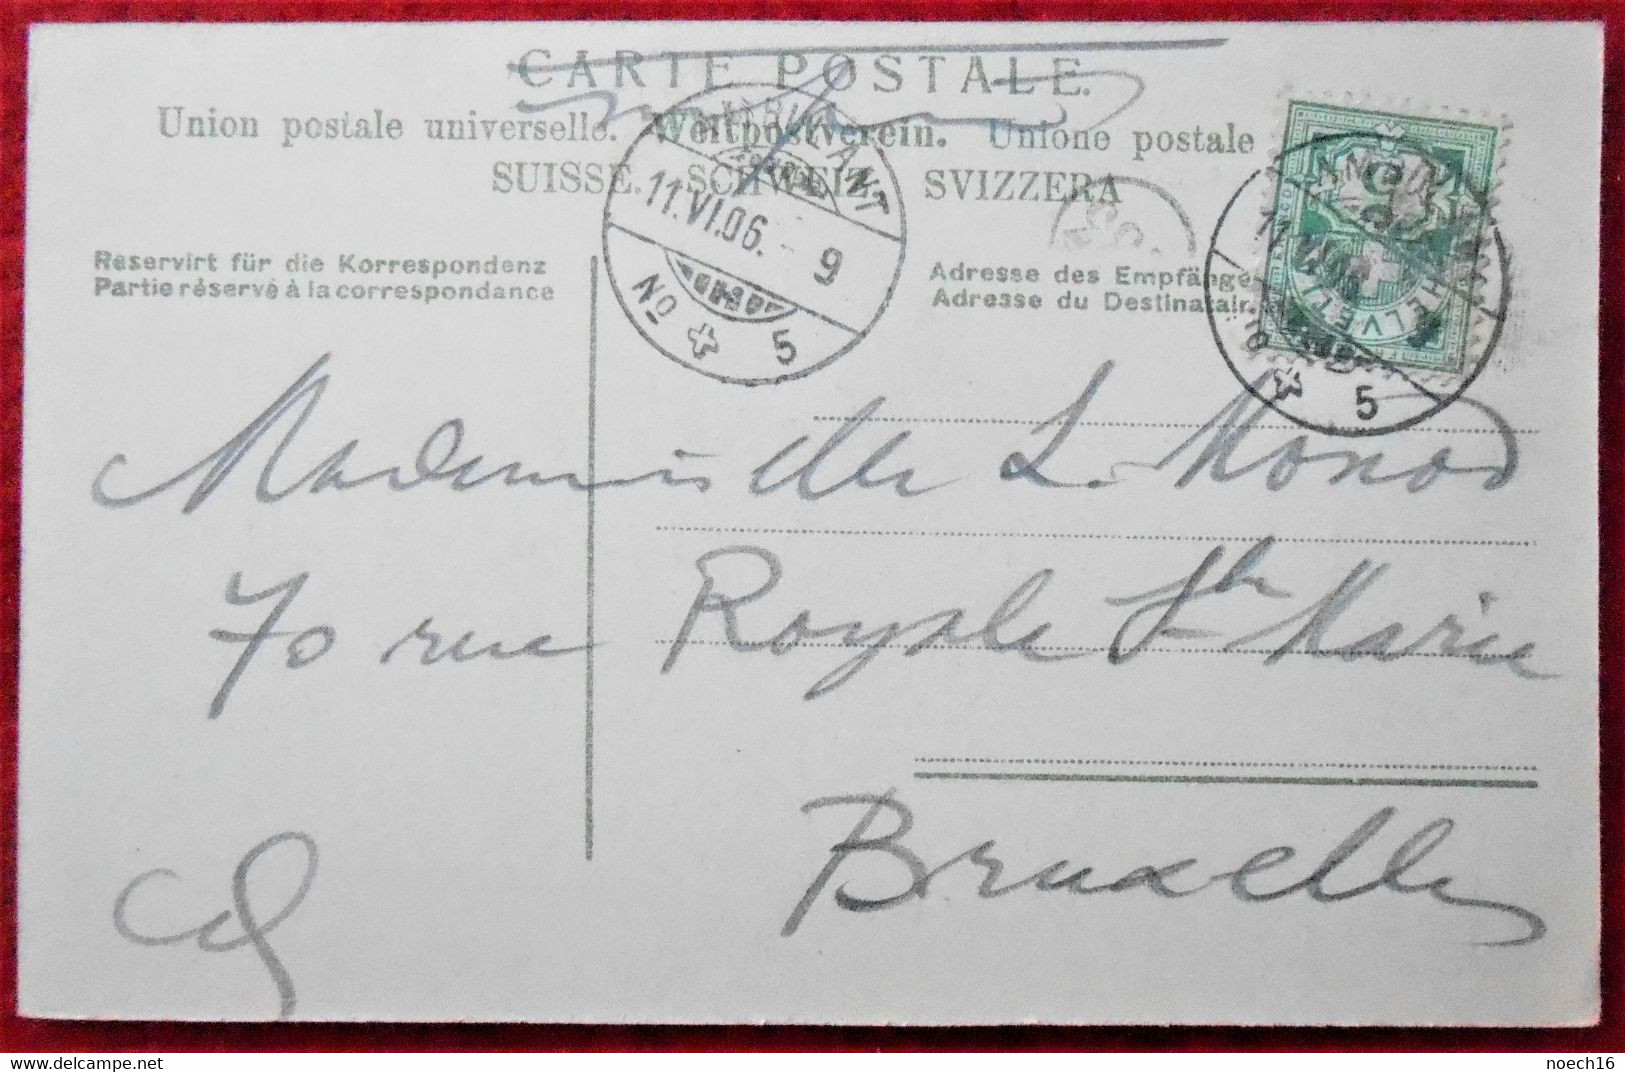 CARTE POSTALE.
Union postale universelle. Weltpostverein. Unione postale
SUISSE. SCHWEIZ. SVIZZERA
AMBULANT
11.VI.06. 9
No 5
Reservirt für die Korrespondenz
Partie réservé à la correspondance
Adresse des Empfänge
Adresse du Destinatair
HELVETIA
5
Mademoiselle L. Monod
70 rue Royale Ste Marie
Bruxelles
noech16
www.delcampe.net